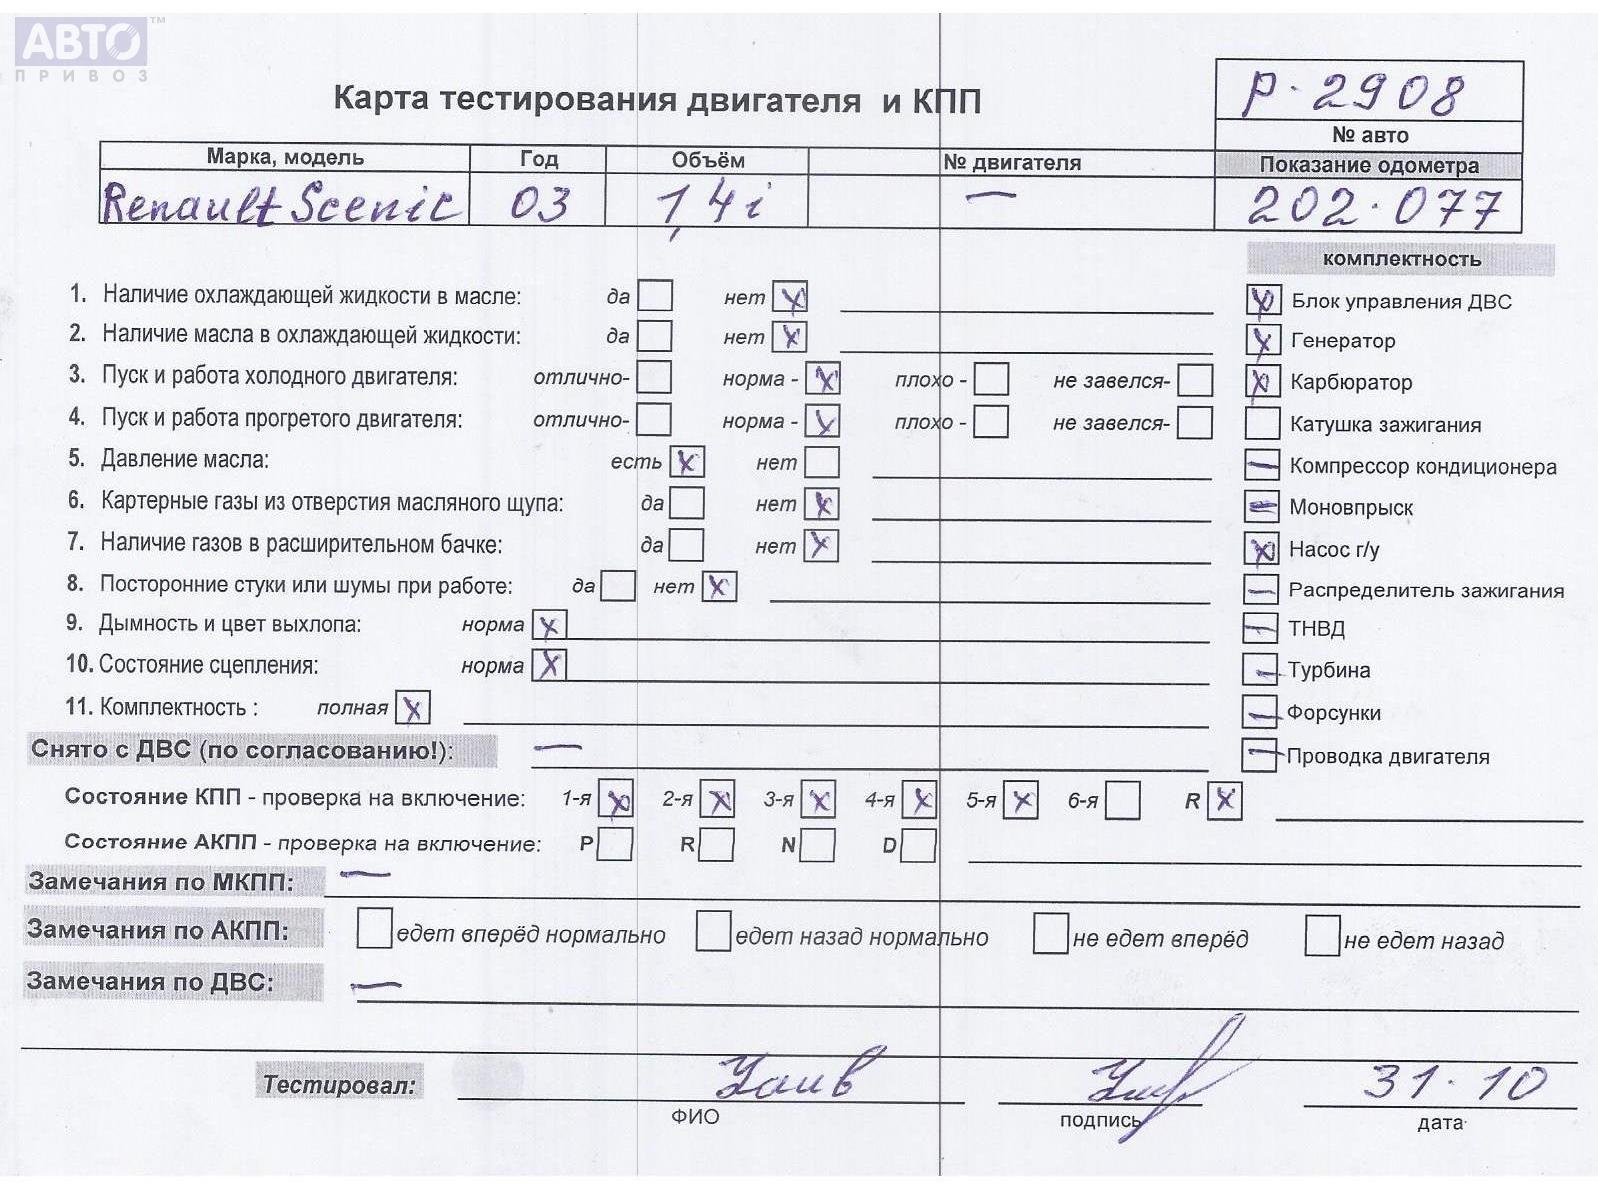 АВТО™
ПРИВОЗ
Карта тестирования двигателя и КПП
Р-2908
№ авто
Марка, модель Год Объём № двигателя Показание одометра
Renault Scenic 03 1,4i — 202.077
комплектность
1. Наличие охлаждающей жидкости в масле: да нет X
2. Наличие масла в охлаждающей жидкости: да нет X
3. Пуск и работа холодного двигателя: отлично- норма - X плохо - не завелся-
4. Пуск и работа прогретого двигателя: отлично- норма - X плохо - не завелся-
5. Давление масла: есть X нет
6. Картерные газы из отверстия масляного щупа: да нет X
7. Наличие газов в расширительном бачке: да нет X
8. Посторонние стуки или шумы при работе: да нет X
9. Дымность и цвет выхлопа: норма X
10. Состояние сцепления: норма X
11. Комплектность : полная X
X Блок управления ДВС
X Генератор
X Карбюратор
Катушка зажигания
— Компрессор кондиционера
— Моновпрыск
X Насос г/у
— Распределитель зажигания
— ТНВД
— Турбина
— Форсунки
— Проводка двигателя
Снято с ДВС (по согласованию!): —
Состояние КПП - проверка на включение: 1-я X 2-я X 3-я X 4-я X 5-я X 6-я R X
Состояние АКПП - проверка на включение: P R N D
Замечания по МКПП: —
Замечания по АКПП: едет вперёд нормально едет назад нормально не едет вперёд не едет назад
Замечания по ДВС: —
Тестировал: 31.10
ФИО подпись дата